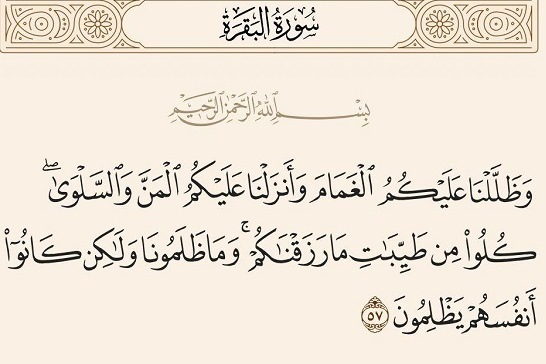 سُورَةُ البَقَرَةِ
بِسْمِ اللَّهِ الرَّحْمَٰنِ الرَّحِيمِ
وَظَلَّلْنَا عَلَيْكُمُ ٱلْغَمَامَ وَأَنزَلْنَا عَلَيْكُمُ ٱلْمَنَّ وَٱلسَّلْوَىٰۖ
كُلُوا۟ مِن طَيِّبَٰتِ مَا رَزَقْنَٰكُمْۚ وَمَا ظَلَمُونَا وَلَٰكِن كَانُوٓا۟
أَنفُسَهُمْ يَظْلِمُونَ ٥٧